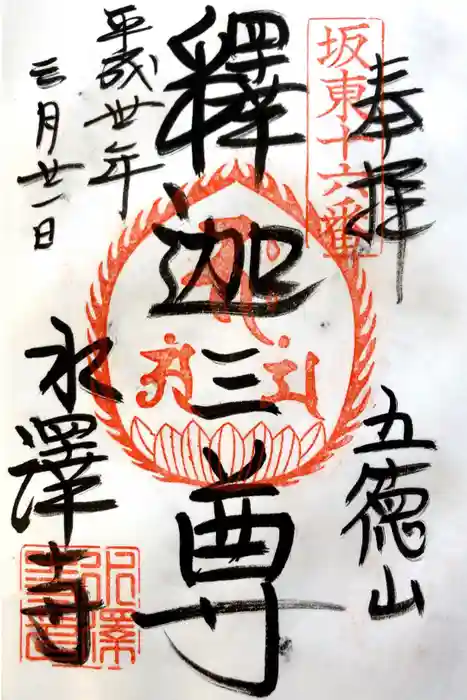 奉拝
坂東十六番
五徳山
釋迦三尊
平成卅年
三月廿一日
水澤寺